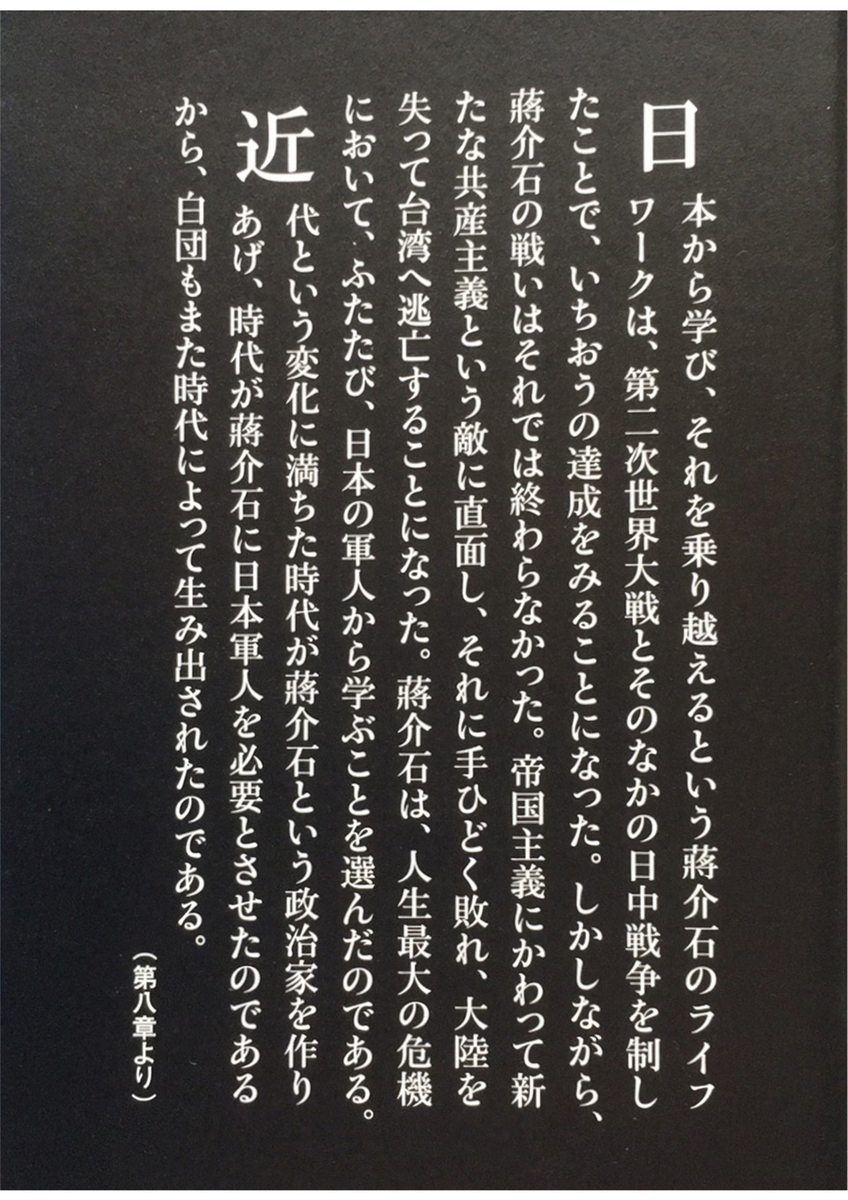 日本から学び、それを乗り越えるという蔣介石のライフ
ワークは、第二次世界大戦とそのなかの日中戦争を制し
たことで、いちおうの達成をみることになった。しかしながら、
蔣介石の戦いはそれでは終わらなかった。帝国主義にかわって新
たな共産主義という敵に直面し、それに手ひどく敗れ、大陸を
失って台湾へ逃亡することになった。蔣介石は、人生最大の危機
において、ふたたび、日本の軍人から学ぶことを選んだのである。
近代という変化に満ちた時代が蔣介石という政治家を作り
あげ、時代が蔣介石に日本軍人を必要とさせたのである
から、白団もまた時代によって生み出されたのである。
（第八章より）